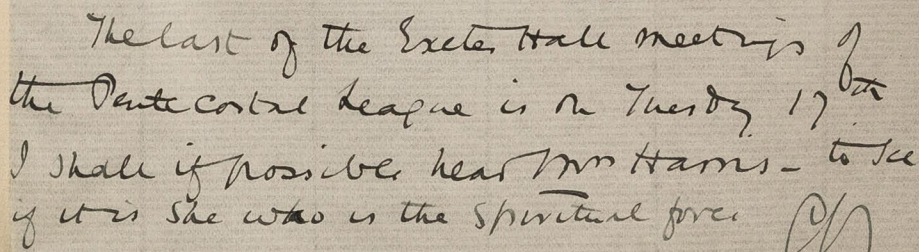 The last of the Exeter Hall meetings of
the Pentecostal League is on Tuesday 17th
I shall if possible hear Mrs Harris - to see
if it is she who is the spiritual force